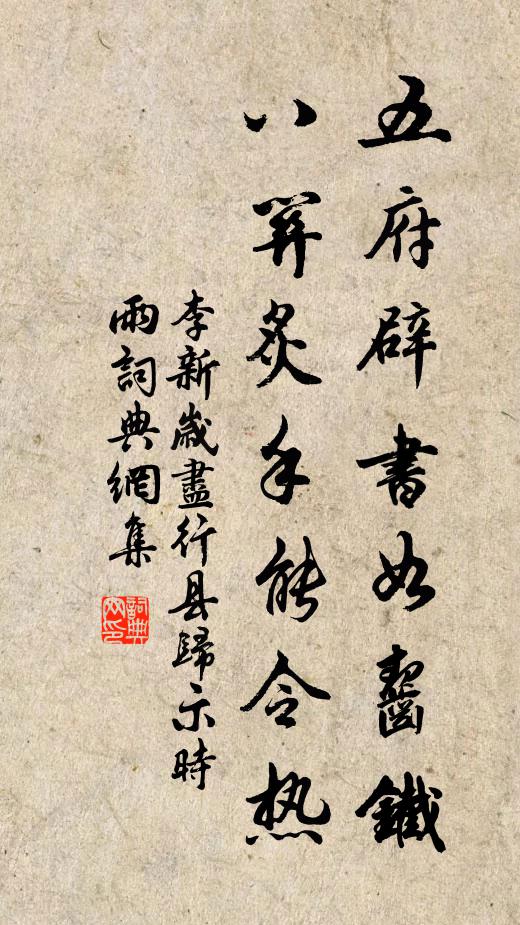 五府辟書如齧鐵
八關炙手能令热
李新歲盡行县歸示時
雨詞典網集
詞典网印